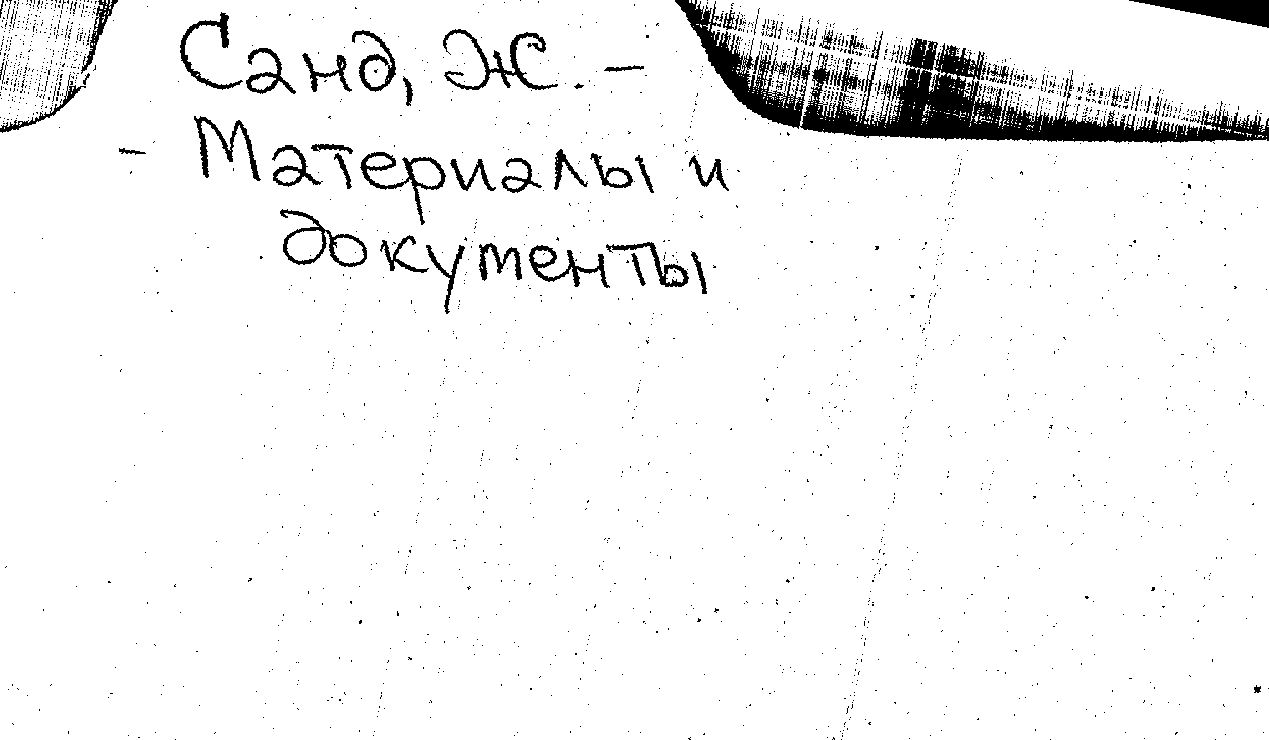 Санд, Ж. -
- Материалы и
документы